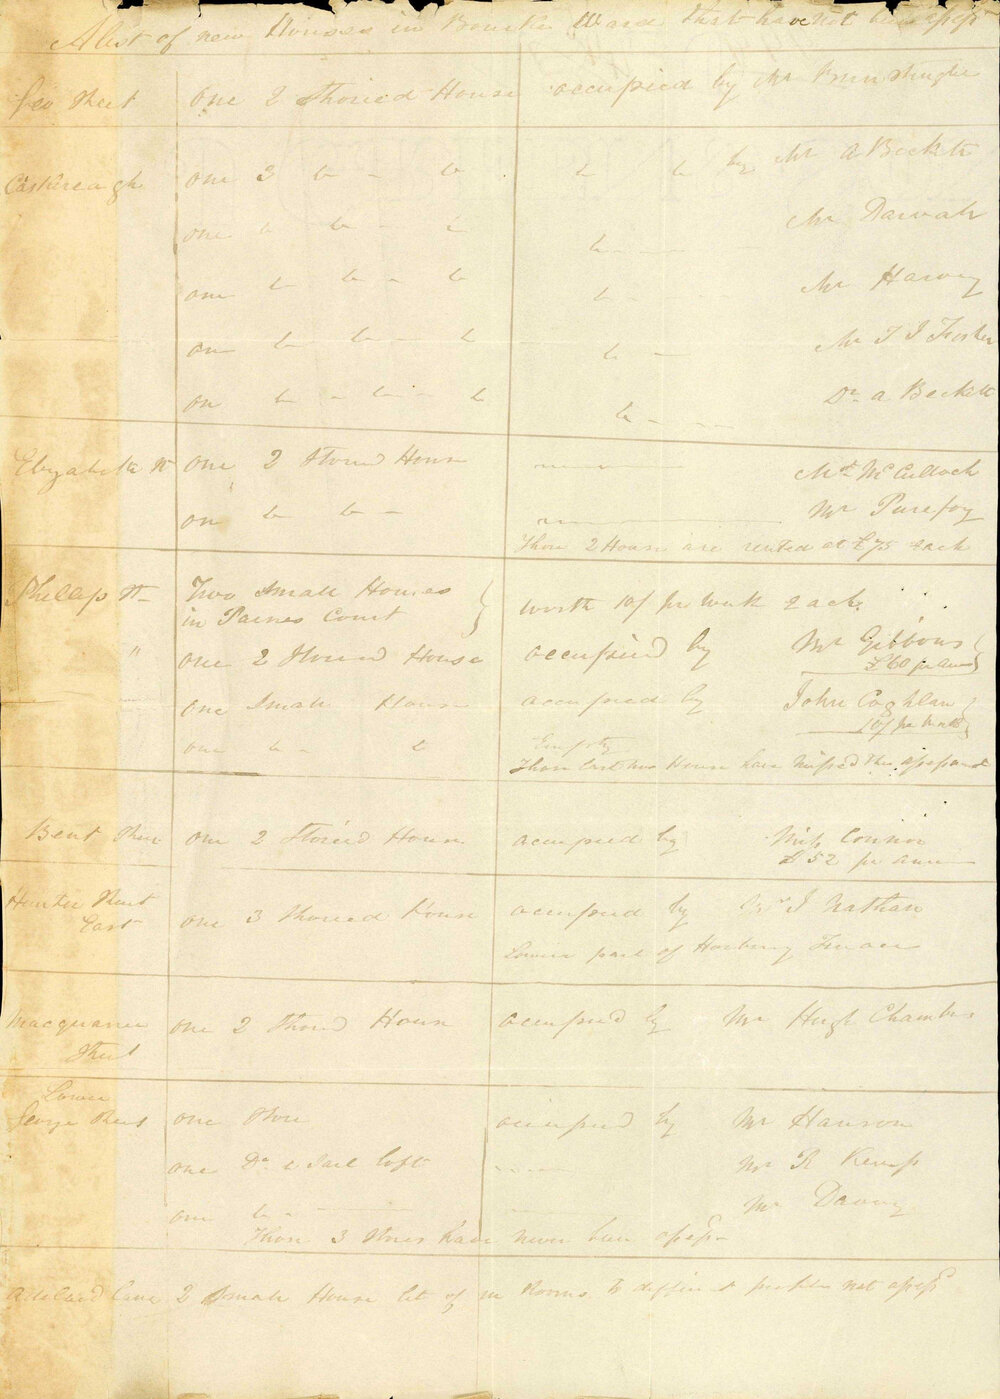 A list of new Houses in Bourke Ward that have not been assess'd
Geo Street one 2 Storied House occupied by Mr
Castlereagh one 3 Do - Do Do Do by Mr A Beckett
one Do Do - Do Do - Mr Darvall
one Do Do - Do Do - Mr Harvey
one Do Do - Do Do - Mr T J Fisher
one Do - Do - Do Do - Dr A Beckett
Elizabeth St one 2 Storied House Mrs McCulloch
one Do Do - Mr Purefoy
These 2 House are rented at £75 each
Phillip St Two Small Houses
in Paines Court worth 10/ per week each
" one 2 Storied House occupied by Mr Gibbons
£60 per Ann
one Small House occupied by John Coghlan
10/ per Week
one Do - Do Empty
These last two House have missed the assessment
Bent Street one 2 Storied House occupied by Miss Connor
£52 per annum
Hunter Street
East one 3 Storied House occupied by I Nathan
Lower part of Horbury Terrace
Macquarie
Street one 2 Storied House occupied by Mr Hugh Chambers
Lower
George Street one Store occupied by Mr Hanson
one Do & Sail loft Mr R Kemp
one Do - Mr Davey
These 3 Stores have never been assess'd
Adelaid Lane 2 Small House let off in Rooms to different peoples not assess'd